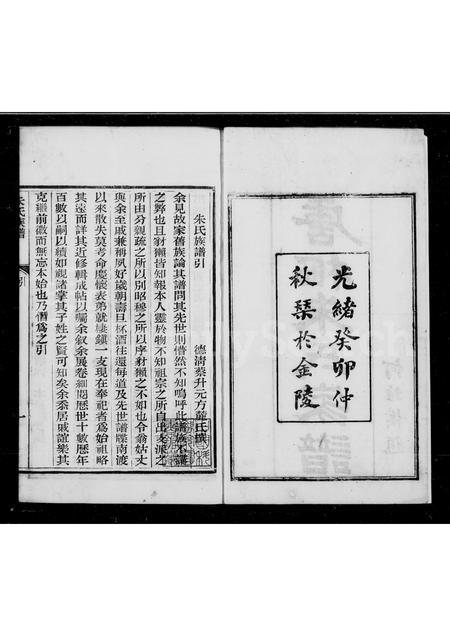 光緒癸卯仲
秋栞於金陵
朱氏族譜引
德清蔡升元方麓氏撰
余見故家舊族論其譜問其先世則懵然不知嗚呼此譜族不講
之弊也且豺獺皆知報本人靈於物不知祖宗之所自出支派之
所由分親疏之所以別昭穆之所以序豺獺之不如也令翁姑丈
與余至戚兼稱夙好歲朝壽旦杯酒往還每道及先世譜牒南渡
以來散失莫考命慶懷表弟就棲鎮一支現在奉祀者為始祖略
其遠而詳其近修輯成帖以囑余叙余展卷細閱歷世十數歷年
百數以嗣以續如視諸掌其子姓之賢可知矣余忝居戚誼樂其
克繼前徽而無忘本始也乃僭為之引
朱氏族譜
引
一